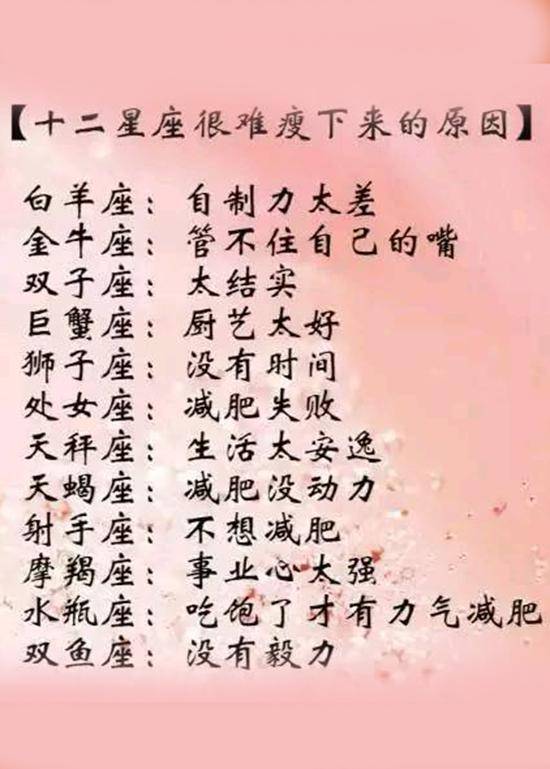 【十二星座很难瘦下来的原因】
白羊座：自制力太差
金牛座：管不住自己的嘴
双子座：太结实
巨蟹座：厨艺太好
狮子座：没有时间
处女座：减肥失败
天秤座：生活太安逸
天蝎座：减肥没动力
射手座：不想减肥
摩羯座：事业心太强
水瓶座：吃饱了才有力气减肥
双鱼座：没有毅力